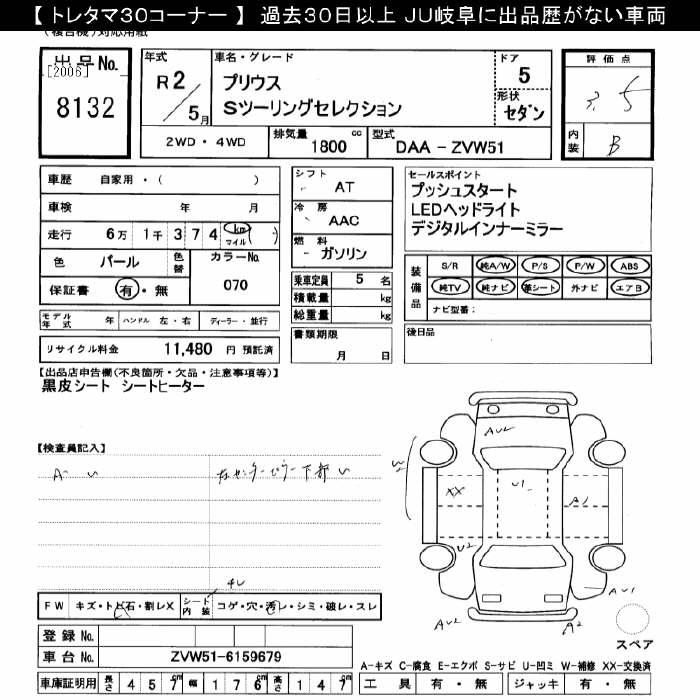 【 トレタマ30コーナー 】 過去30日以上 JU岐阜に出品歴がない車両
(複合機)対応用紙
出品No.
[2006]
8132
年式
R 2 / 5 月
車名・グレード
プリウス
Sツーリングセレクション
ドア
5
形状
セダン
2WD・4WD
排気量
1800 cc
型式
DAA - ZVW51
評価点
3.5
内装
B
車歴 自家用・( )
車検 年 月
走行 6万 1千 3 7 4 km マイル ( )
色 パール 色替 カラーNo. 070
保証書 有・無
モデル年式 年 ハンドル 左・右 ディーラー・並行
リサイクル料金 11,480 円 預託済
シフト AT
冷房 AAC
燃料 ガソリン
乗車定員 5 名
積載量 kg
総重量 kg
書類期限
月 日
セールスポイント
プッシュスタート
LEDヘッドライト
デジタルインナーミラー
装備品
S/R 純A/W P/S P/W ABS
純TV 純ナビ 革シート 外ナビ エアB
ナビ型番:
後日品
【出品店申告欄(不良箇所・欠品・注意事項等)】
黒皮シート シートヒーター
【検査員記入】
XX
U1
A1
U2
AU1
A2
FW キズ・トビ石・割レX シート内装 コゲ・穴・汚レ・シミ・破レ・スレ
登録No.
車台No. ZVW51-6159679
車庫証明用 長さ 4 5 7 cm 幅 1 7 6 cm 高さ 1 4 7 cm
スペア
A-キズ C-腐食 E-エクボ S-サビ U-凹ミ W-補修 XX-交換済
工具 有・無 ジャッキ 有・無